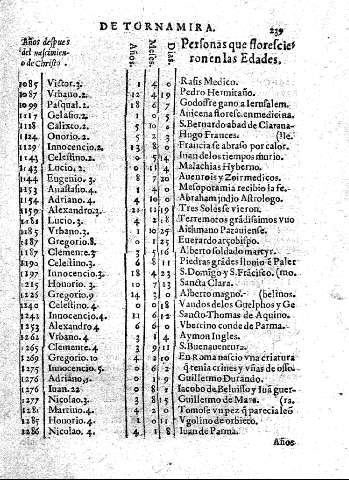 DE TORNAMIRA. 239
Años despues del nascimiento de Christo. Años. Meses. Dias. Personas que florescieron en las Edades.
1085 Victor.3. 1 4 0 Rasis Medico.
1087 Vrbano.2. 12 4 19 Pedro Hermitaño.
1099 Pasqual.2. 18 6 7 Godofre gano a Ierusalem.
1117 Gelasio.2. 1 0 5 Avicena floresc.en medicina.
1118 Calixto.2. 5 10 0 S.Bernardo abad de Clarana-
1124 Onorio.2. 5 2 3 Hugo Frances. (lle.
1129 Innocencio.2. 13 8 0 Francia se abraso por calor.
1143 Celestino.2. 0 5 14 Iuan delos tiempos murio.
1143 Lucio.2. 0 11 4 Malachias Hyberno.
1144 Eugenio.3. 7 20 Auenrois y Zoir medicos.
1153 Anastasio.4. 1 4 0 Mesopotamia recibio la fe.
1154 Adriano.4. 4 10 0 Abraham judio Astrologo.
1159 Alexandro.3. 21 12 19 Tres Soles se vieron.
1181 Lucio.3. 4 2 18 Terremotos grãdissimos vuo
1185 Vrbano.3. 1 10 25 Aichmano Patauiense.
1187 Gregorio.8. 0 1 25 Euerardo arçobispo.
1187 Clemente.3. 3 5 16 Alberto soldado martyr.
1190 Celestino.3. 6 8 11 Piedras grãdes llonio ẽ Paler
1197 Innocencio.3. 18 4 23 S.Domīgo y S.Frãcisco. (mo.
1215 Honorio.3. 10 7 13 Sancta Clara.
1226 Gregorio.9 14 3 0 Alberto magno. (belinos.
1240 Celestino.4. 0 0 18 Vandos de los Guelphos y Ge
1241 Innocencio.4. 11 6 12 Sancto Thomas de Aquino.
1253 Alexandro.4 6 6 0 Vbertino conde de Parma.
1261 Vrbano.4 3 1 4 Aymon Ingles.
1265 Clemente.4. 3 9 11 S.Buenauentura.
1269 Gregorio.10 4 2 10 En Roma nascio vna criatura
1275 Innocencio.5. 0 6 2 q̃ tenia crines y vñas de osso.
1276 Adriano.5. 0 1 9 Guillermo Durando.
1276 Iuan.22 0 8 Iacobo de Beluisso y Iuã guer-
1277 Nicolao.3. 3 8 15 Guillermo de Mara. (ra.
1281 Martino.4. 4 2 0 Tomose vn pez q̃ parecia leõ
1285 Honorio.4. 2 0 1 Vgolino de orbieto.
1286 Nicolao.4. 4 1 8 Iuan de Parma.
Años